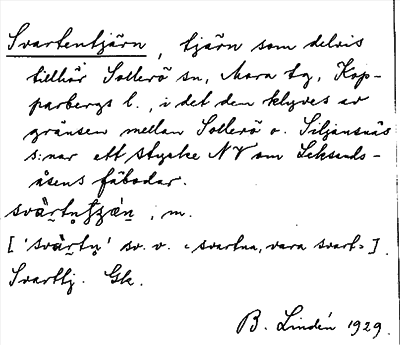 Svartentjärn, tjärn som delvis
tillhör Sollerö sn, Mora tg, Kop-
parbergs l., i det den klyves av
gränsen mellan Sollerö o. Siljansnäs
s:nar ett stycke NV om Leksands-
åsens fäbodar.
m.
sv. v. "svartna, vara svart"].
Svarttj. Gk.
B. Lindén 1929.